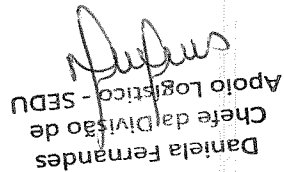 Daniela Fernandes
Chefe da Divisão de
Apoio Logístico - SEDU